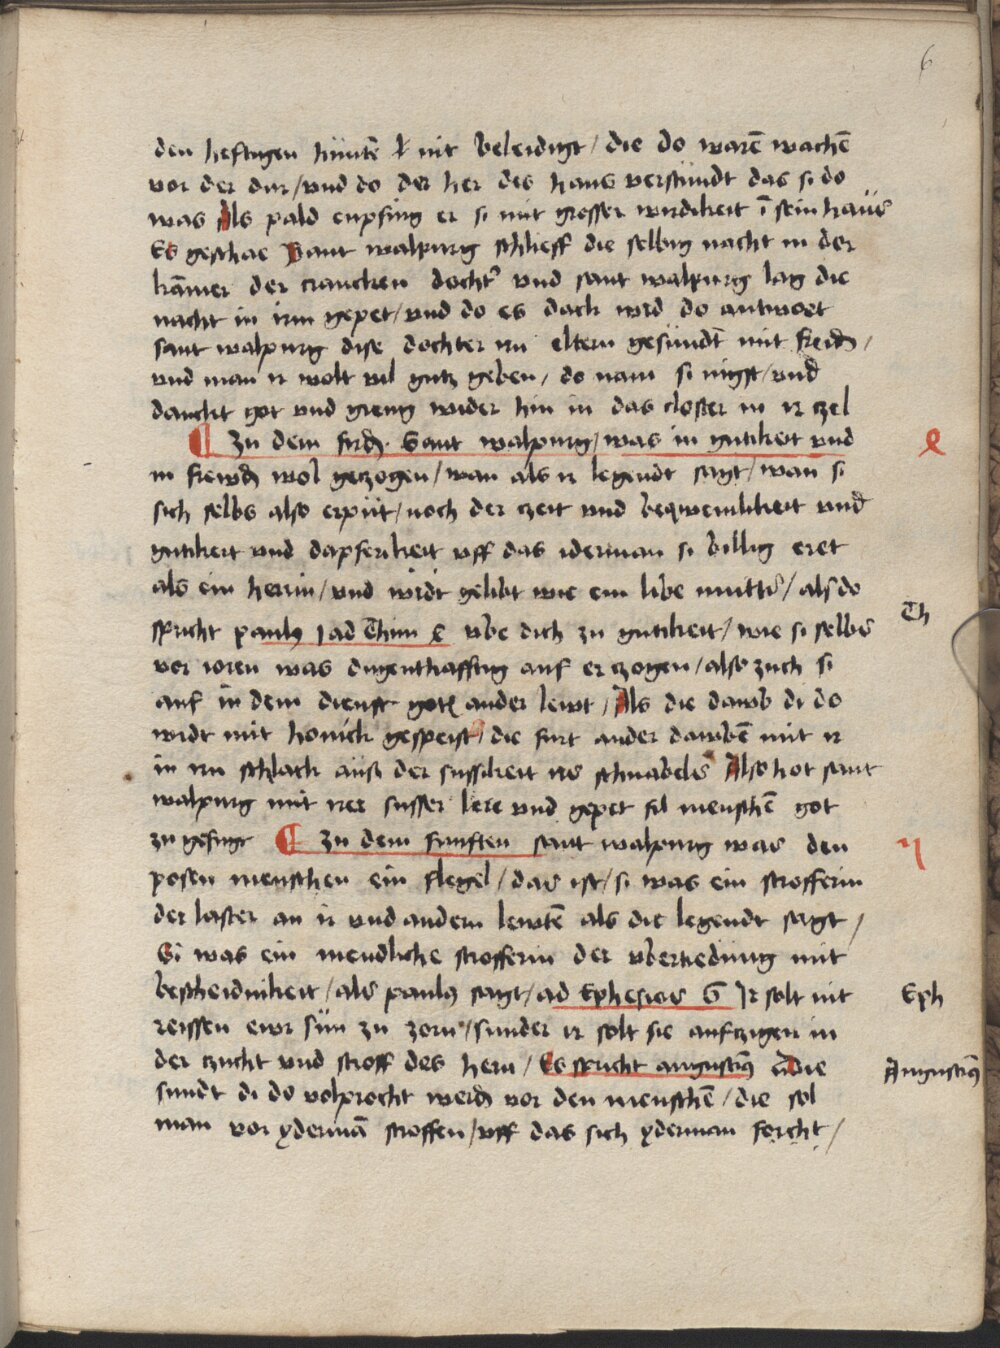 6
den heftigen hunte̅ nit beleidigt / die do ware̅ wache̅
vor der dur / vnd do der her des haus verstundt das si do
was Als pald enpfing er si mit grosser wirdikeit i̅ sein haus
Es geschae Sant walpurg schlieff die selbig nacht in der
ka̅mer der crancken docht' vnd sant walpurg lag die
nacht in irm gepet / vnd do es dach wrd do antwort
sant walpurg dise dochter irn eltern gesundt mit freidn /
vnd man ir wolt vil gutz geben / do nam si nigst / vnd
danckt got vnd gieng wider hin in das closter in ir zel
¶ Zu dem firdn Sant walpurg / was in gutikeit vnd
in frewdn wol gezogen / wan als ir legendt sagt / wan si
sich selbs also erpüt / noch der zeit vnd beqwemlikeit vnd
gutikeit vnd dapferikeit vff das iderman si billig eret
als ein herrin / vnd wirdt gelibt wie ein libe mutt' / als do
spricht paulus 1 ad Thim 4 vbe dich zu gutikeit / wie si selbs
vor ioren was dugenthafftig auf erzogen / also zuch si
auf in dem dienst gots ander lewt / Als die dawb di do
wirdt mit honick gespeist / die furt ander dawbe̅ mit ir
in irn schlach auss der sussikeit irs schnabels Also hot sant
walpurg mit irer susser lere vnd gepet fil mensche̅ got
zu gefugt ¶ Zu dem funften sant walpurg was den
posen menschen ein flegel / das ist / si was ein strofferin
der laster an ir vnd andern lewte̅ als die legendt sagt /
Si was ein mendliche strofferin der vbertredung mit
bescheidnikeit / als paulus sagt / ad Ephesios 6 Ir solt nit
reissen ewr sün zu zorn / sunder ir solt sie aufzigen in
der zucht vnd stroff des hern / Es spricht augustin9 die
sundt di do volprocht werdn vor den mensche̅ / die sol
man vor yderma̅ stroffen / vff das sich yderman forcht /
Th
Eph
Augustin9